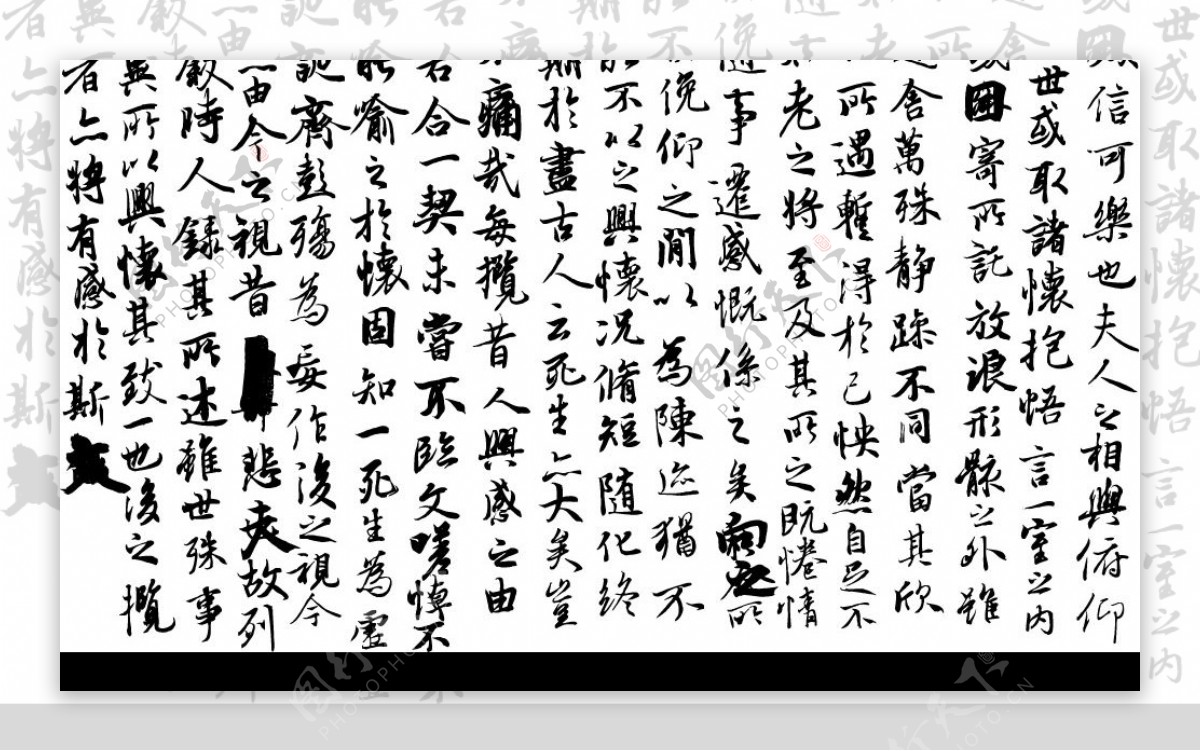 信可樂也夫人之相與俯仰
世或取諸懷抱悟言一室之內
或因寄所託放浪形骸之外雖
舍萬殊静躁不同當其欣
所遇蹔得於己怏然自足不
老之將至及其所之既惓情
隨事遷感慨係之矣向之所
俛仰之閒以為陳迹猶不
能不以之興懷況脩短隨化終
期於盡古人云死生亦大矣豈
不痛哉每攬昔人興感之由
若合一契未嘗不臨文嗟悼不
能喻之於懷固知一死生為虛
誕齊彭殤為妄作後之視今
由今之視昔悲夫故列
敘時人錄其所述雖世殊事
異所以興懷其致一也後之攬
者亦將有感於斯文